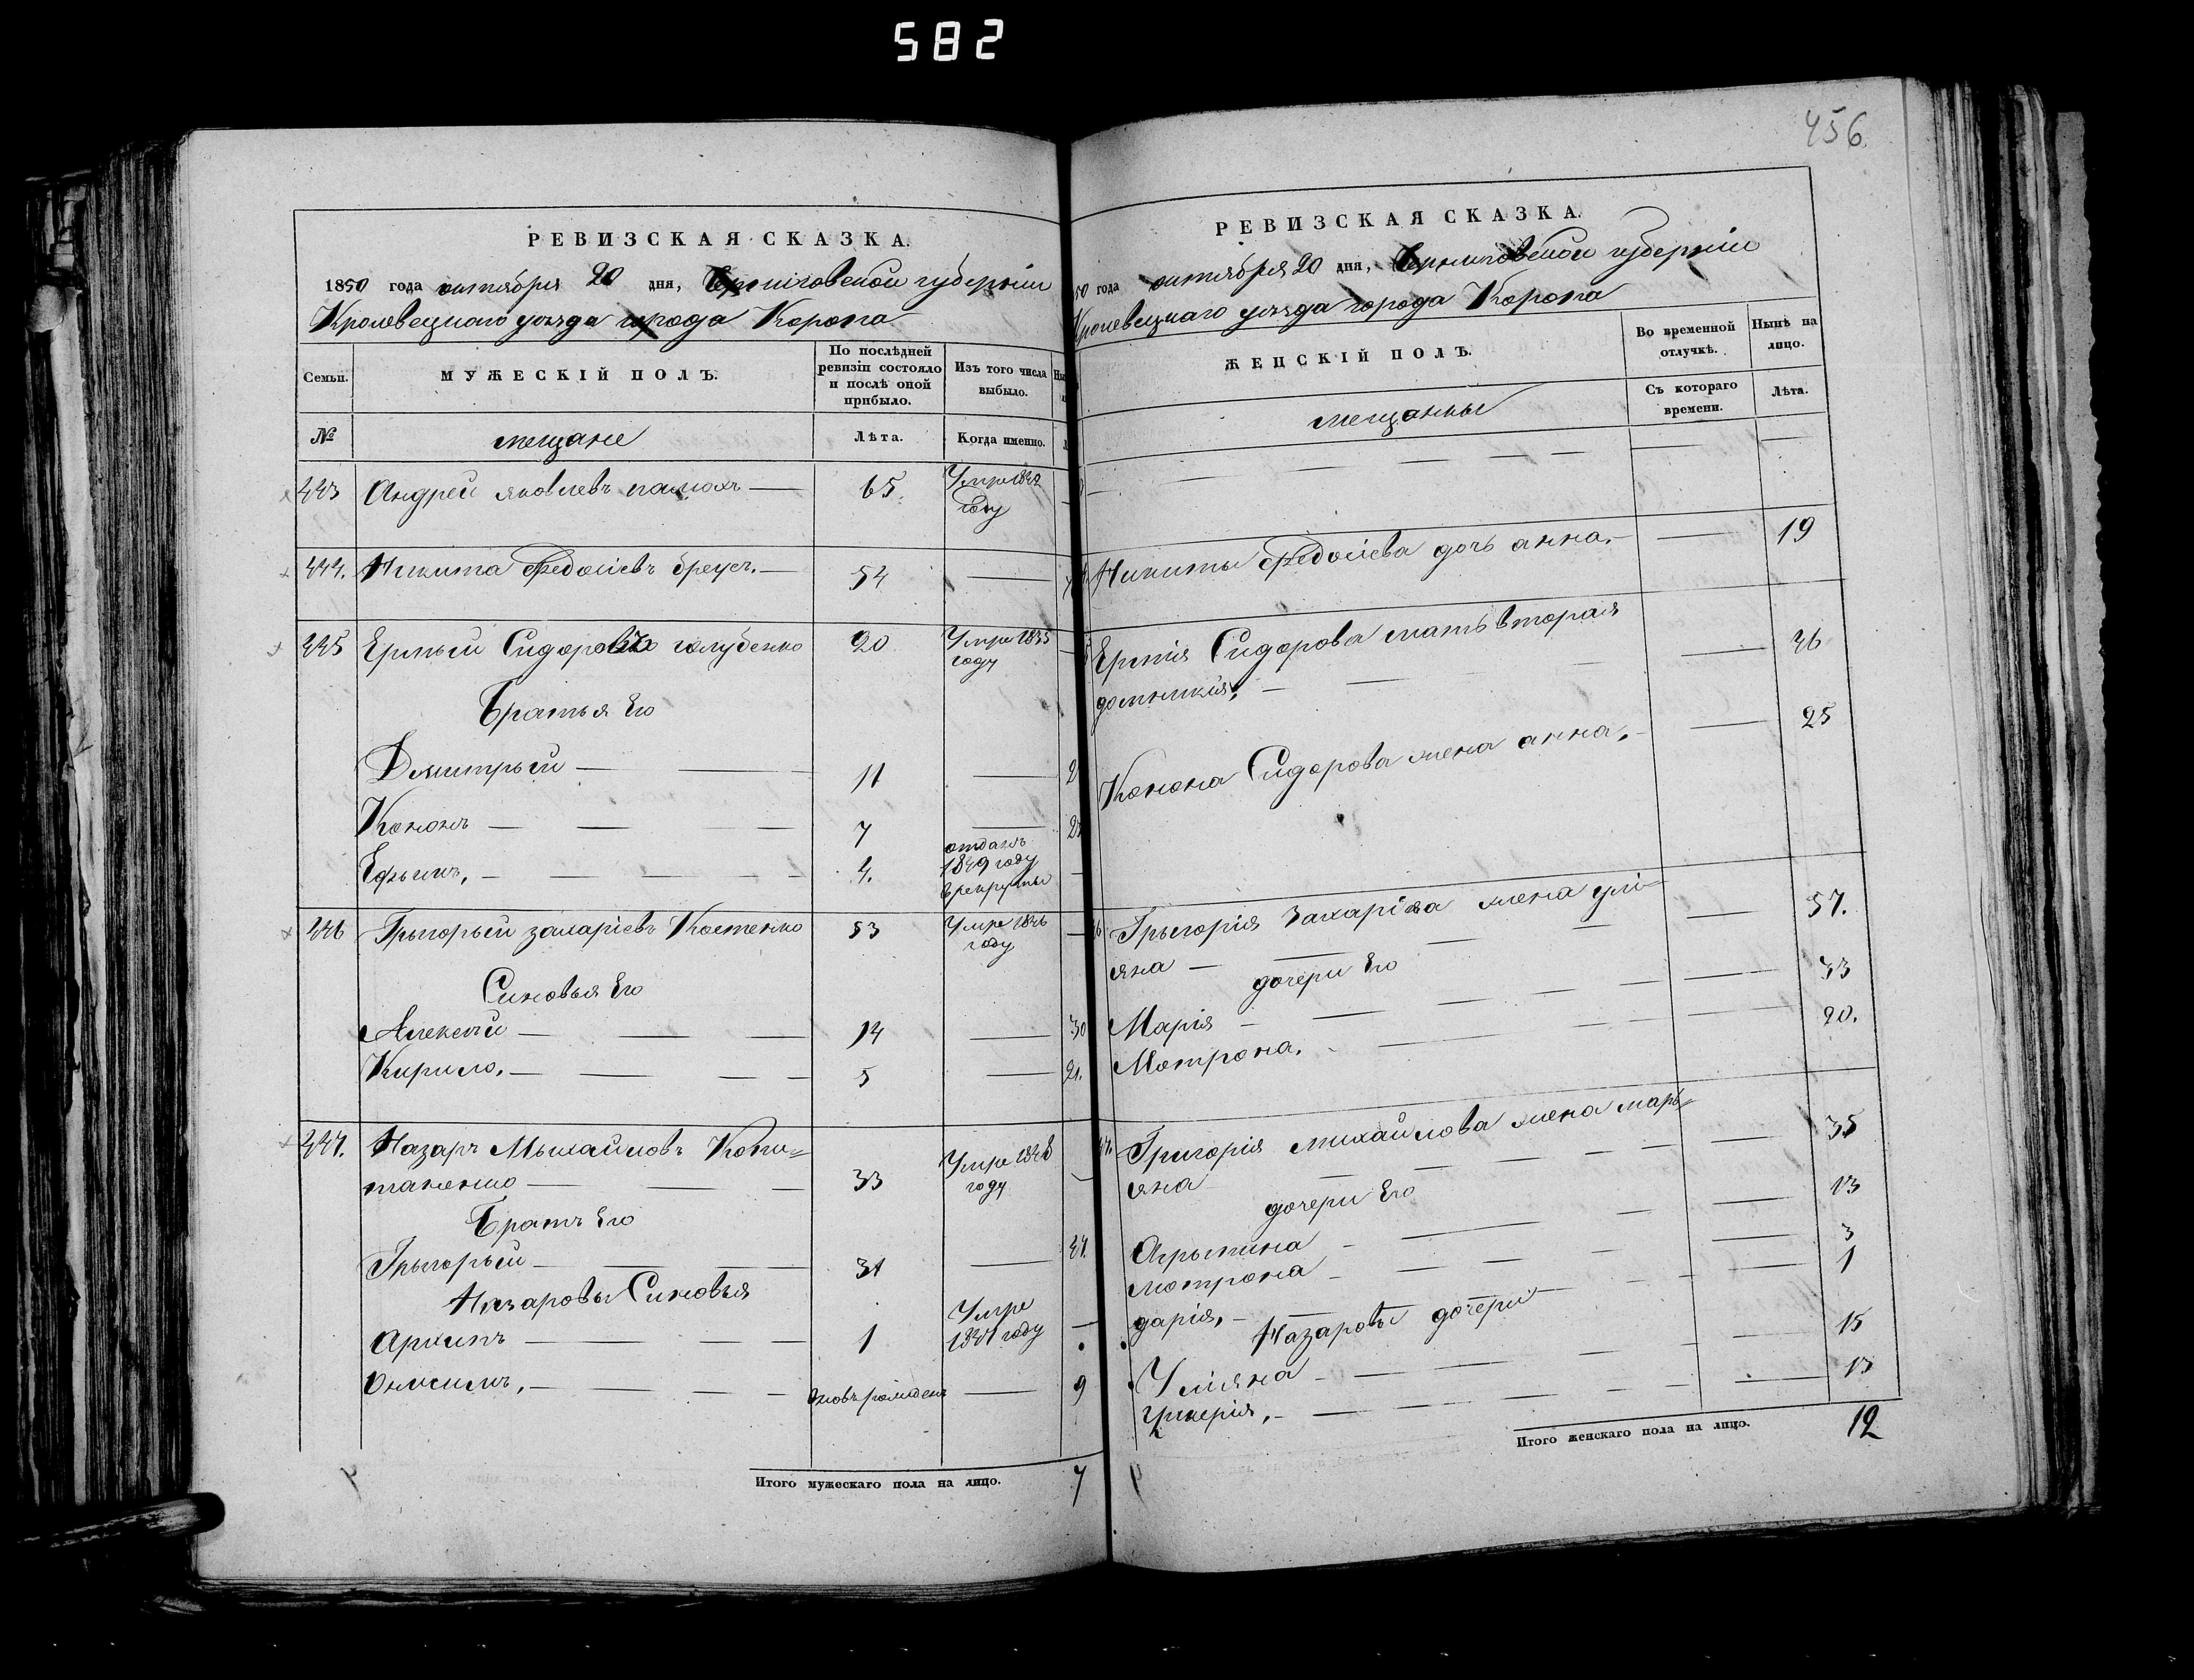 582
456
РЕВИЗСКАЯ СКАЗКА.
1850 года октября 20 дня, Черниговской губерніи
Кролевецкаго уезда города Коропа
Семьи.
МУЖЕСКІЙ ПОЛЪ.
По послѣдней ревизіи состояло и послѣ оной прибыло.
Изъ того числа выбыло.
№
мещане
Лѣта.
Когда именно.
443 Андрей яковлевъ 65 Умре 1842 году
444. Никита Федосіевъ бреус. 54
445 Ермый Сидоровъ голубенко 20 Умре 1835 году
Братья Его
Дмитрый 11
Кононъ 7
Ефымъ, 4. отданъ 1849 году в рекруты
446 Грыгорый захаріевъ Костенко 53 Умре 1846 году
Синовья Его
Алексей 14 30
Кирило, 5 21.
447. Назаръ Мыхайловъ Копи=
таненко 33 Умре 1848 году
Братъ Его
Грыгорый 31 47.
Назаровы Синовья
Архипъ 1 Умре 1841 году
Онисимъ, вновь рожденъ 9
Итого мужескаго пола на лицо. 7
РЕВИЗСКАЯ СКАЗКА.
50 года октября 20 дня, Черниговской губерніи
Кролевецкаго уезда города Коропа
ЖЕНСКІЙ ПОЛЪ.
Во временной отлучкѣ.
Нынѣ на лицо.
мещанкы
Съ котораго времени.
Лѣта.
Никиты Федосіева дочь анна. 19
Ермія Сидорова мать вторая 46
домникія,
Конона Сидорова жена анна, 25
Грыгорія Захаріева жена улі=
яна 57.
дочери Его
Марія 33
Мотрона. 20.
Григорія михайлова жена марь=
яна 35
дочери Его
Агрыпина 13
мотрона 3
дарія, 1
Назаровы дочери
Уліяна 15
гликерія, 13
Итого женскаго пола на лицо. 12